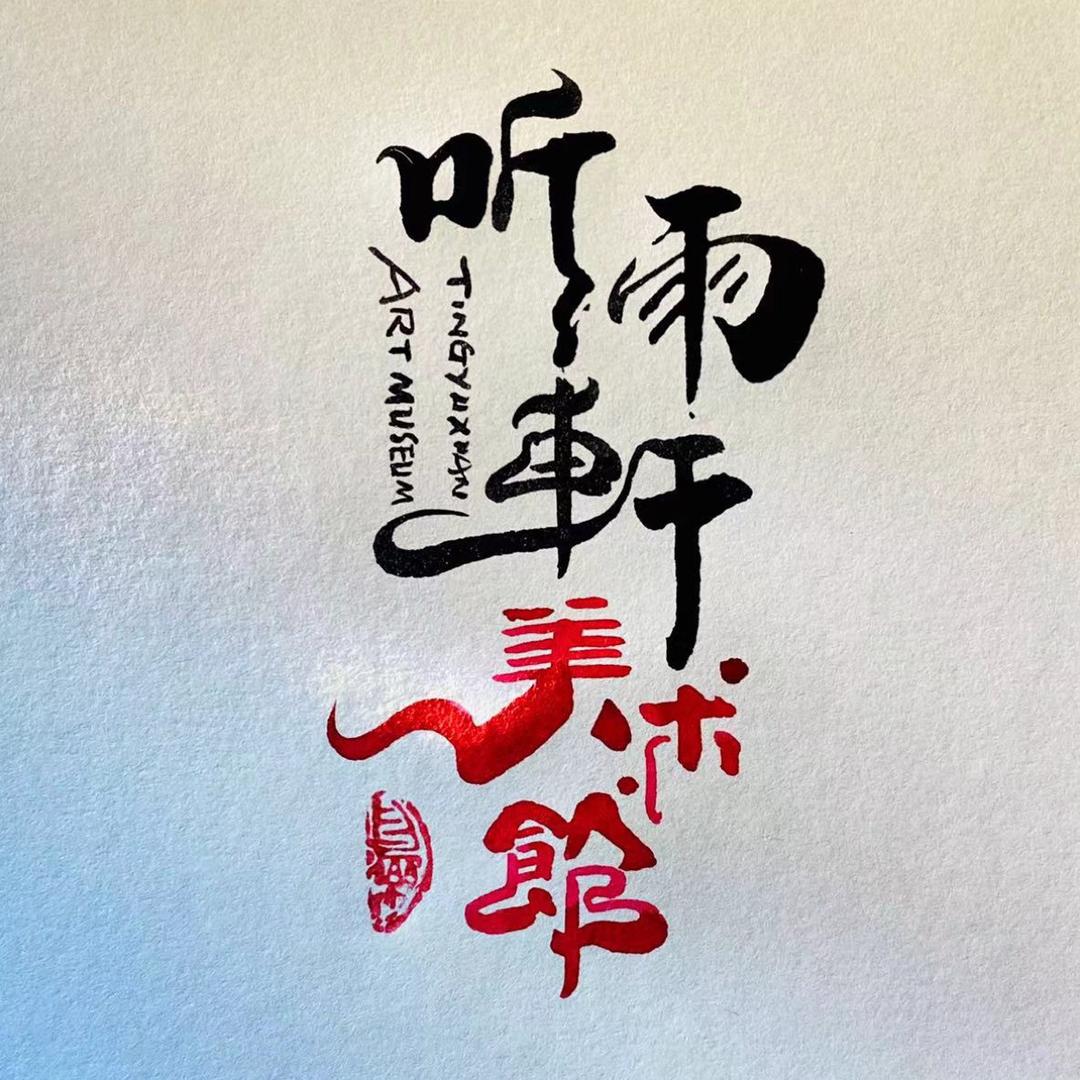 听雨軒
美术館
TINGYUXUAN
ART MUSEUM